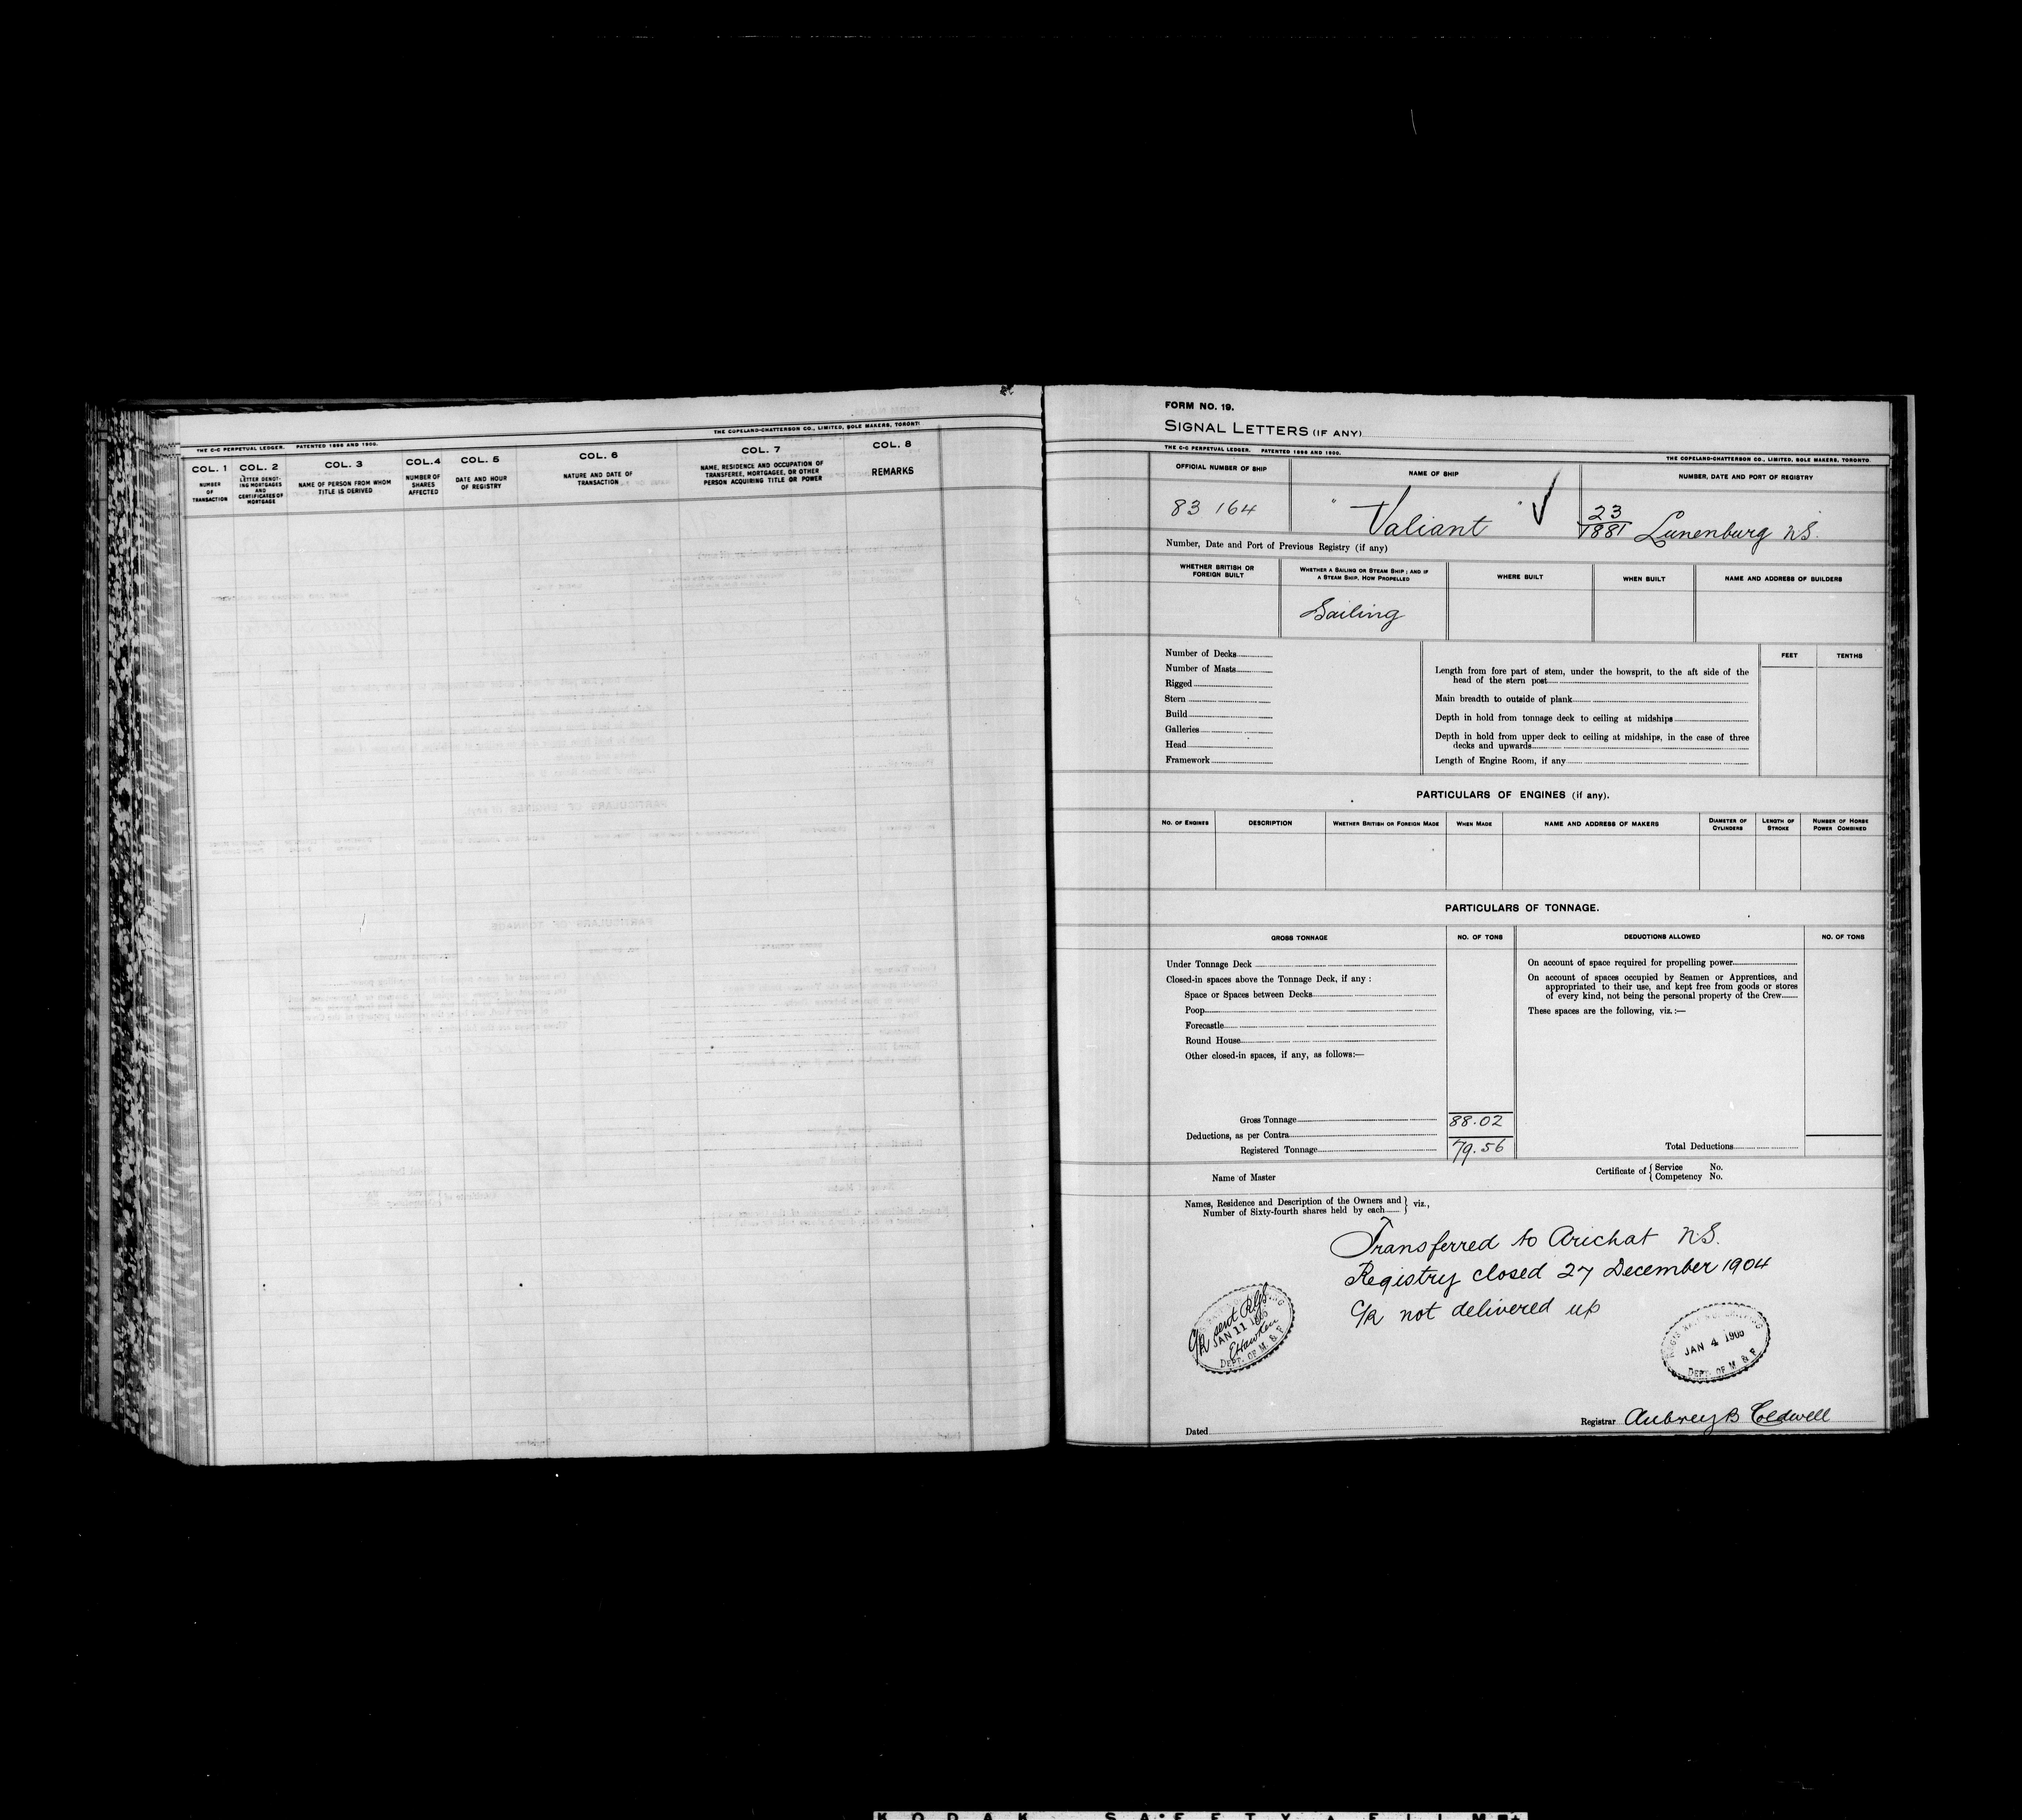 THE C-C PERPETUAL LEDGER. PATENTED 1896 AND 1900.
THE COPELAND-CHATTERSON CO., LIMITED, SOLE MAKERS, TORONTO
COL. 1 COL. 2 COL. 3 COL. 4 COL. 5 COL. 6 COL. 7 COL. 8
NUMBER OF TRANSACTION
LETTER DENOTING MORTGAGES AND CERTIFICATES OF MORTGAGE
NAME OF PERSON FROM WHOM TITLE IS DERIVED
NUMBER OF SHARES AFFECTED
DATE AND HOUR OF REGISTRY
NATURE AND DATE OF TRANSACTION
NAME, RESIDENCE AND OCCUPATION OF TRANSFEREE, MORTGAGEE, OR OTHER PERSON ACQUIRING TITLE OR POWER
REMARKS
FORM NO. 19.
SIGNAL LETTERS (IF ANY)
THE C-C PERPETUAL LEDGER. PATENTED 1896 AND 1900.
THE COPELAND-CHATTERSON CO., LIMITED, SOLE MAKERS, TORONTO.
OFFICIAL NUMBER OF SHIP NAME OF SHIP NUMBER, DATE AND PORT OF REGISTRY
83 164 "Valiant" 23/1881 Lunenburg N.S.
Number, Date and Port of Previous Registry (if any)
WHETHER BRITISH OR FOREIGN BUILT
WHETHER A SAILING OR STEAM SHIP; AND IF A STEAM SHIP, HOW PROPELLED
WHERE BUILT
WHEN BUILT
NAME AND ADDRESS OF BUILDERS
Sailing
Number of Decks
Number of Masts
Rigged
Stern
Build
Galleries
Head
Framework
FEET TENTHS
Length from fore part of stem, under the bowsprit, to the aft side of the
head of the stern post
Main breadth to outside of plank
Depth in hold from tonnage deck to ceiling at midships
Depth in hold from upper deck to ceiling at midships, in the case of three
decks and upwards
Length of Engine Room, if any
PARTICULARS OF ENGINES (if any).
NO. OF ENGINES DESCRIPTION WHETHER BRITISH OR FOREIGN MADE WHEN MADE NAME AND ADDRESS OF MAKERS DIAMETER OF CYLINDERS LENGTH OF STROKE NUMBER OF HORSE POWER COMBINED
PARTICULARS OF TONNAGE.
GROSS TONNAGE NO. OF TONS DEDUCTIONS ALLOWED NO. OF TONS
Under Tonnage Deck
Closed-in spaces above the Tonnage Deck, if any :
Space or Spaces between Decks
Poop
Forecastle
Round House
Other closed-in spaces, if any, as follows:—
On account of space required for propelling power
On account of spaces occupied by Seamen or Apprentices, and
appropriated to their use, and kept free from goods or stores
of every kind, not being the personal property of the Crew
These spaces are the following, viz.:—
Gross Tonnage 88.02
Deductions, as per Contra
Registered Tonnage 79.56
Total Deductions
Name of Master
Certificate of { Service No.
{ Competency No.
Names, Residence and Description of the Owners and } viz.,
Number of Sixty-fourth shares held by each
Transferred to Arichat N.S.
Registry closed 27 December 1904
C/R not delivered up
C/R sent RGS
JAN 11
DEPT. OF M. & F.
JAN 4 1905
DEPT. OF M & F.
Dated
Registrar Aubrey B Coldwell
KODAK SAFETY FILM